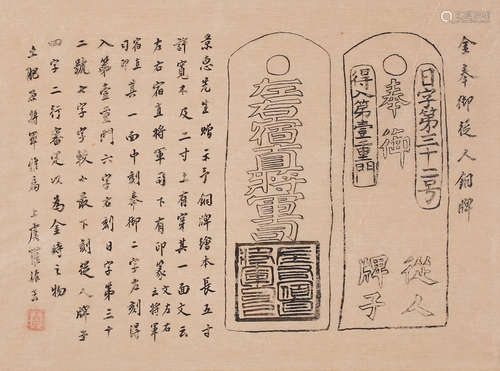 金奉御從人銅牌
日字第三十二号
奉御
得入第壹重門
從人
牌子
左右宿直將軍司
景惠先生贈示予銅牌繪本長五寸
許寬不及二寸上有穿其一面文云
左右宿直將軍司下有印篆文左右將軍
宿直司印其一面中刻奉御二字左刻得
入第壹重門六字右刻日字第三十
二號七字字較小最下刻從人牌子
四字二行審定以為金時之物
土肥原將軍 上虞羅振玉